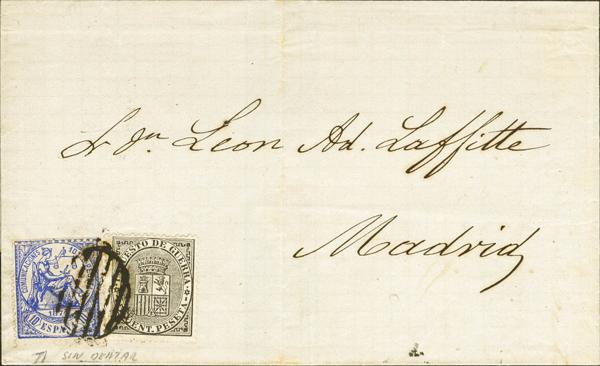 Sr Dn Leon Ad. Laffitte
Madrid
COMUNICACIONES
10
ESTO DE GUERRA
10
ESPA
CENT. PESETA
SIN DENTAR